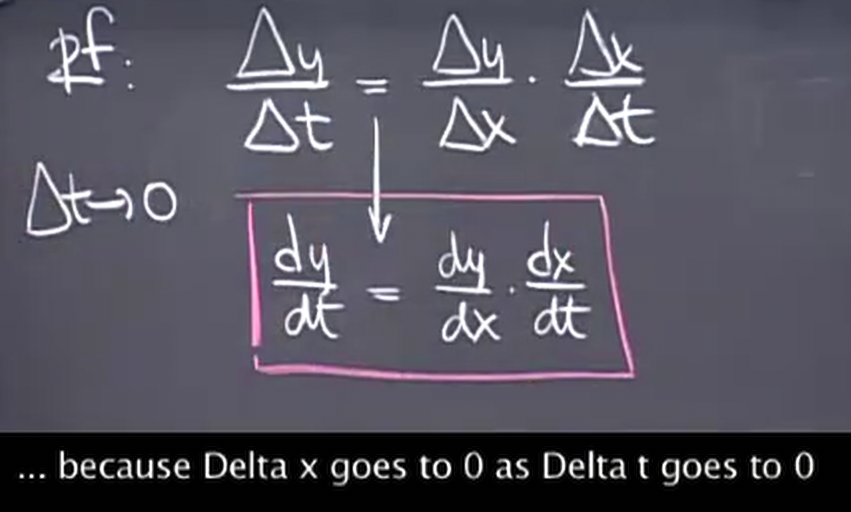 pf: Δy/Δt = Δy/Δx · Δx/Δt
Δt→0
dy/dt = dy/dx · dx/dt
... because Delta x goes to 0 as Delta t goes to 0